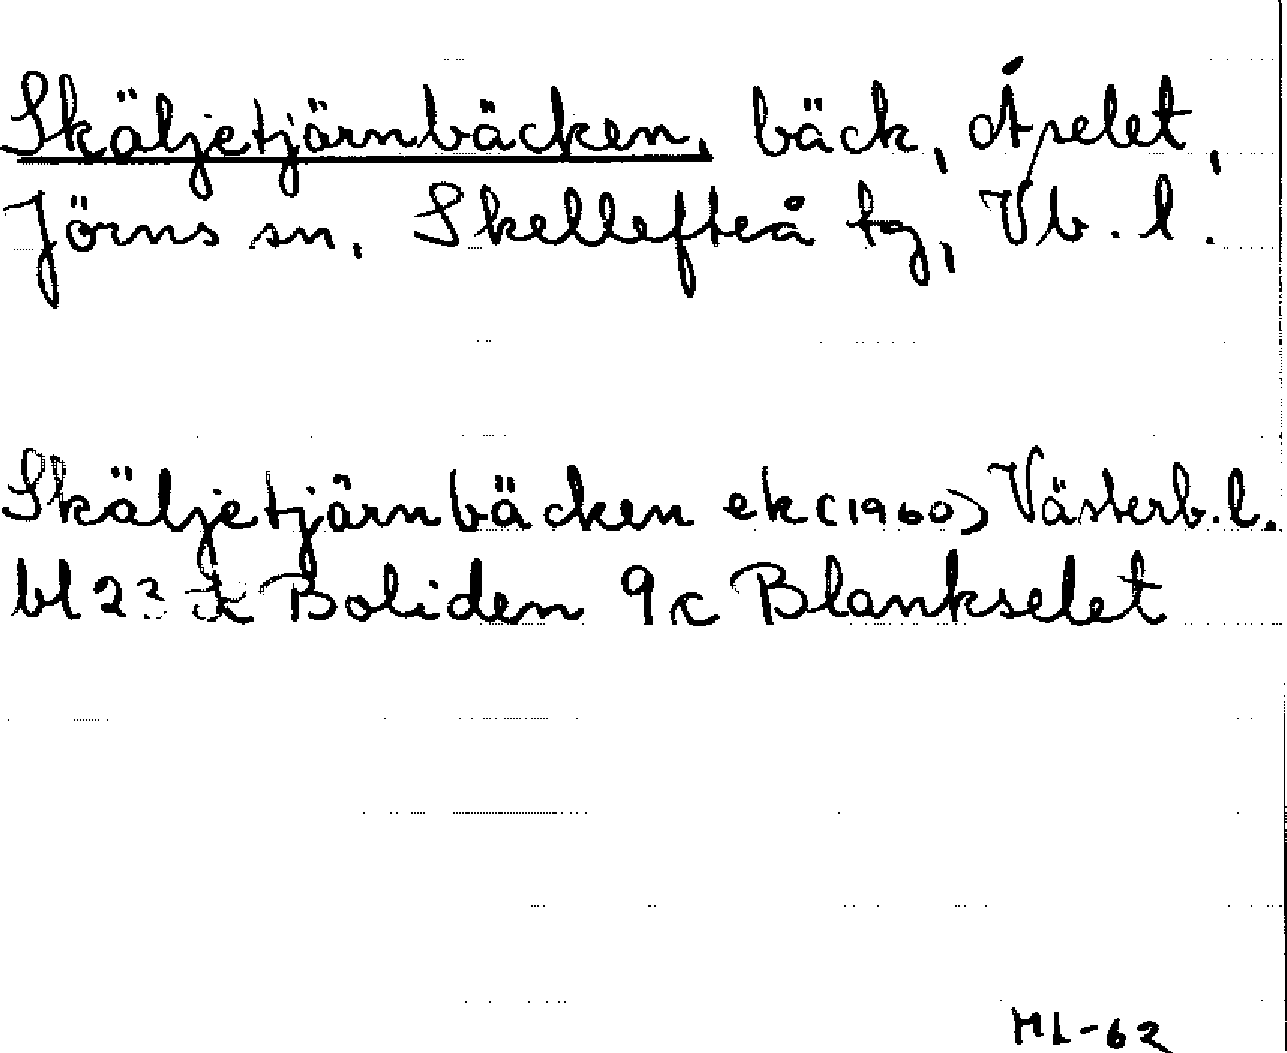 Skäljetjärnbäcken, bäck, Åselet,
Jörns sn, Skellefteå tg, Vb. l.
Skäljetjärnbäcken ek (1960) Västerb. l.
bl 23 K Boliden 9c Blankselet
ML-62